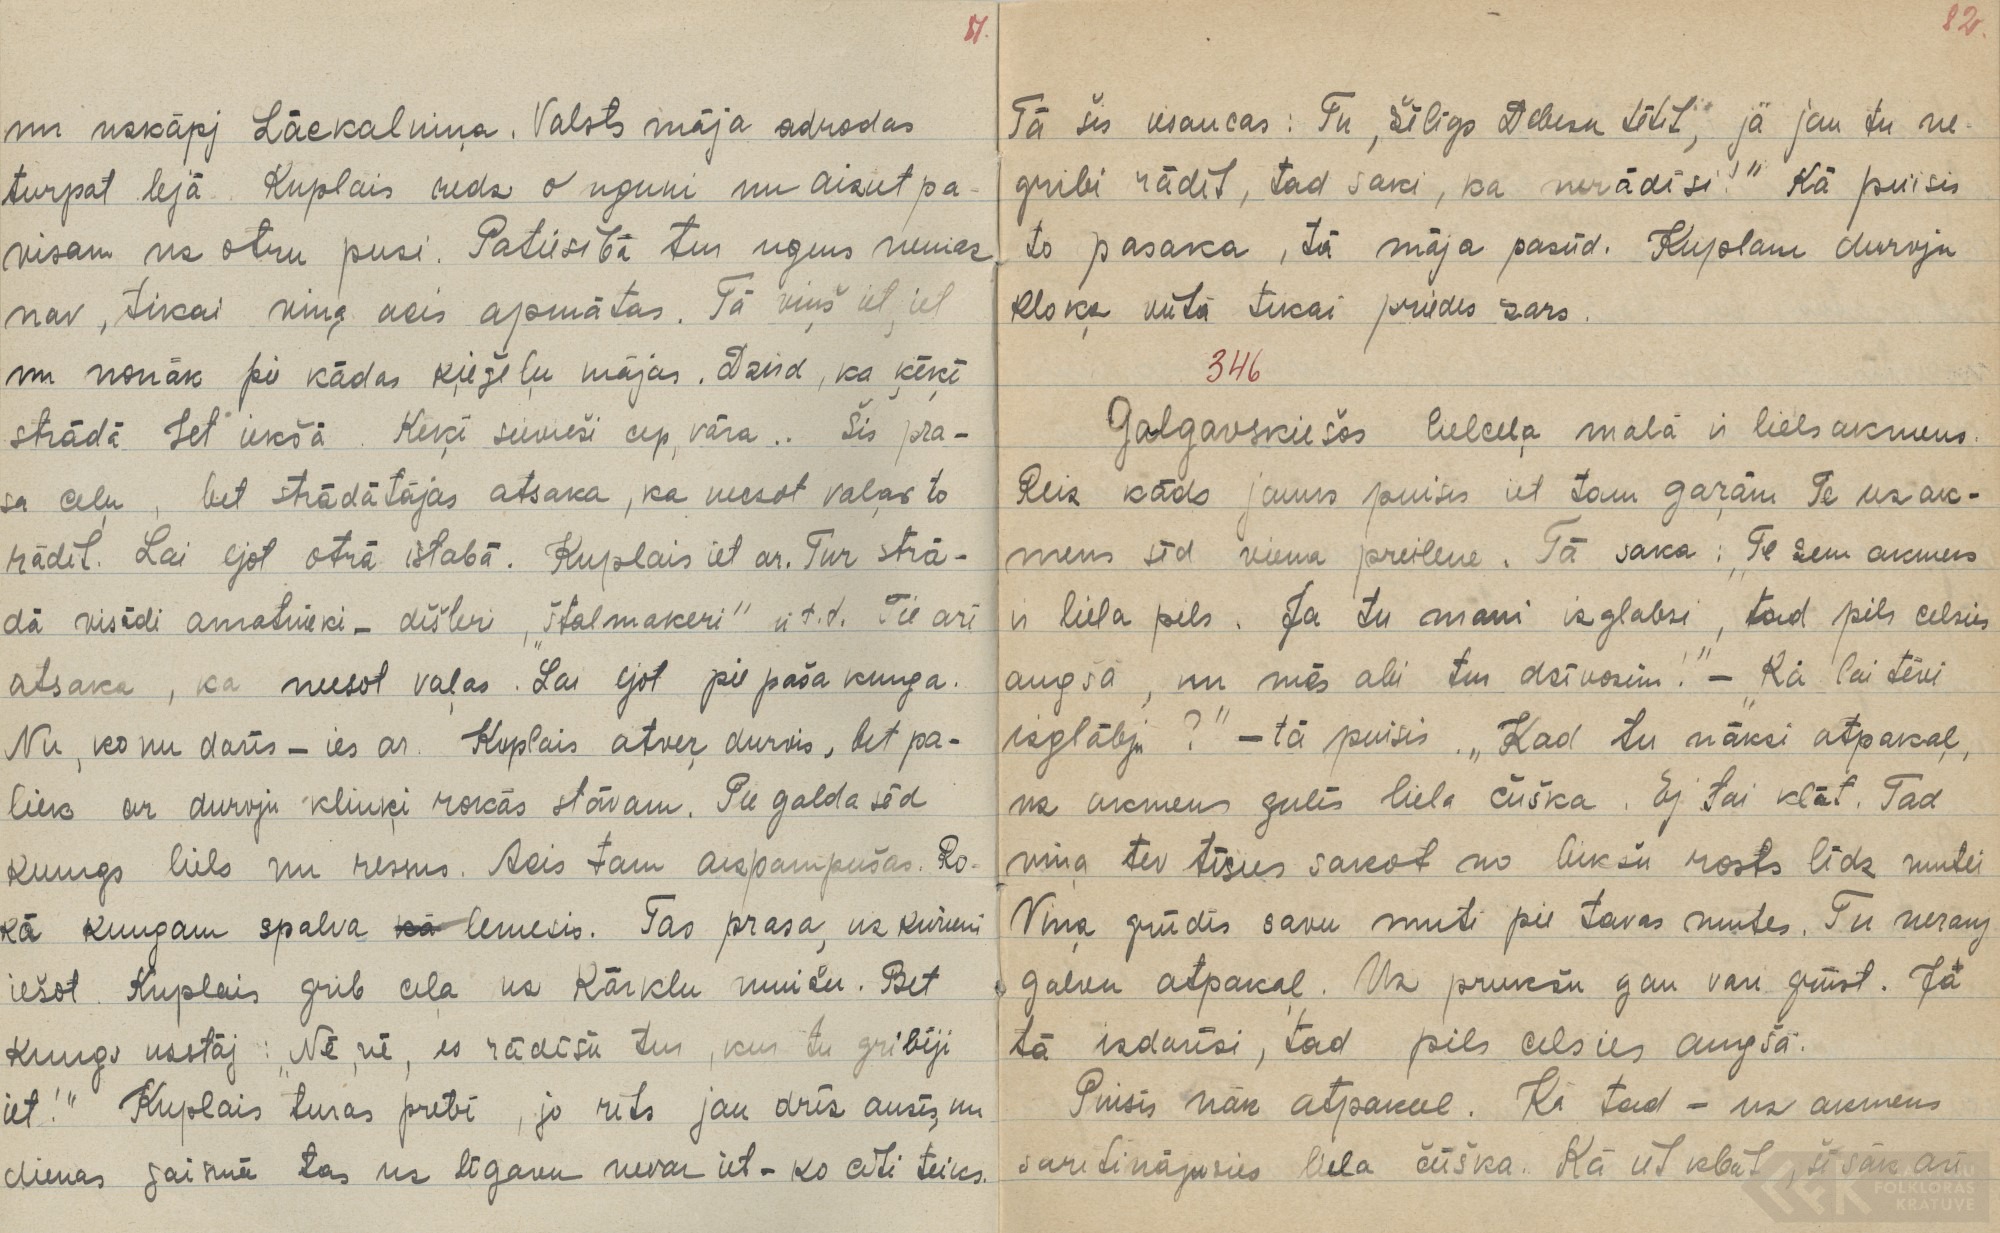 81.
un uzkāpj Lāčkalniņa. Valsts māja adrodas
turpat lejā. Kuplais redz o uguni un aiziet pa-
visam uz otru pusi. Patiesībā tur uguns nemaz
nav, tikai viņa acis apmātas. Tā viņš iet, iet
un nonāk pie kādas ķieģeļu mājas. Dzird, ka ķēķī
strādā. Iet iekšā. Ķēķī sievieši cep, vāra.. Šis pra-
sa ceļu, bet strādātājas atsaka, ka neesot vaļas to
rādīt. Lai ejot otrā istabā. Kuplais iet ar. Tur strā-
dā visādi amatnieki - dišleri, „štalmakeri" u.t.t. Tie arī
atsaka, ka neesot vaļas. Lai ejot pie paša kunga.
Nu, ko nu darīs - ies ar. Kuplais atver durvis, bet pa-
liek ar durvju kliņķi rokās stāvam. Pie galda sēd
kungs liels un resnus. Acis tam aizpampušas. Ro-
kā kungam spalva kā lemesis. Tas prasa, uz kurieni
iešot. Kuplais grib ceļa uz Kārklu muižu. Bet
kungs uzstāj: „Nē, nē, es rādīšu tur, kur tu gribēji
iet!" Kuplais turas pretī, jo rīts jau drīz ausīs, un
dienas gaismā tas uz līgavu nevar iet - ko citi teiks.
82.
Tā šis iesaucas: Tu, žēlīgs Debesu tētīt, jā jau tu ne-
gribi rādīt, tad saki, ka nerādīsi!" Kā puisis
to pasaka, tā māja pazūd. Kuplam durvju
kloķa vietā tikai priedes zars.
346
Galgavskiešos lielceļa malā ir liels akmens.
Reiz kāds jauns puisis iet tam gaŗām. Te uz ak-
mens sēd viena preilene. Tā saka: „Te zem akmens
ir liela pils. Ja tu mani izglābsi, tad pils celsies
augšā, un mēs abi tur dzīvosim!" - „Kā lai tevi
izglābju?" - tā puisis. „Kad tu nāksi atpakaļ,
uz akmens gulēs liela čūška. Ej tai klāt. Tad
viņa tev tīsies sakot no liekšu rosts līdz mutei
Viņa grūdīs savu muti pie tavas mutes. Tu nerauj
galvu atpakaļ. Uz prukšu gan vari grūst. Jā
tā izdarīsi, tad pils celsies augšā.
Puisis nāk atpakaļ. Kā tad - uz akmens
saritinājusies liela čūška. Kā iet klāt, šī sāk arī
FOLKLORAS
KRATUVE